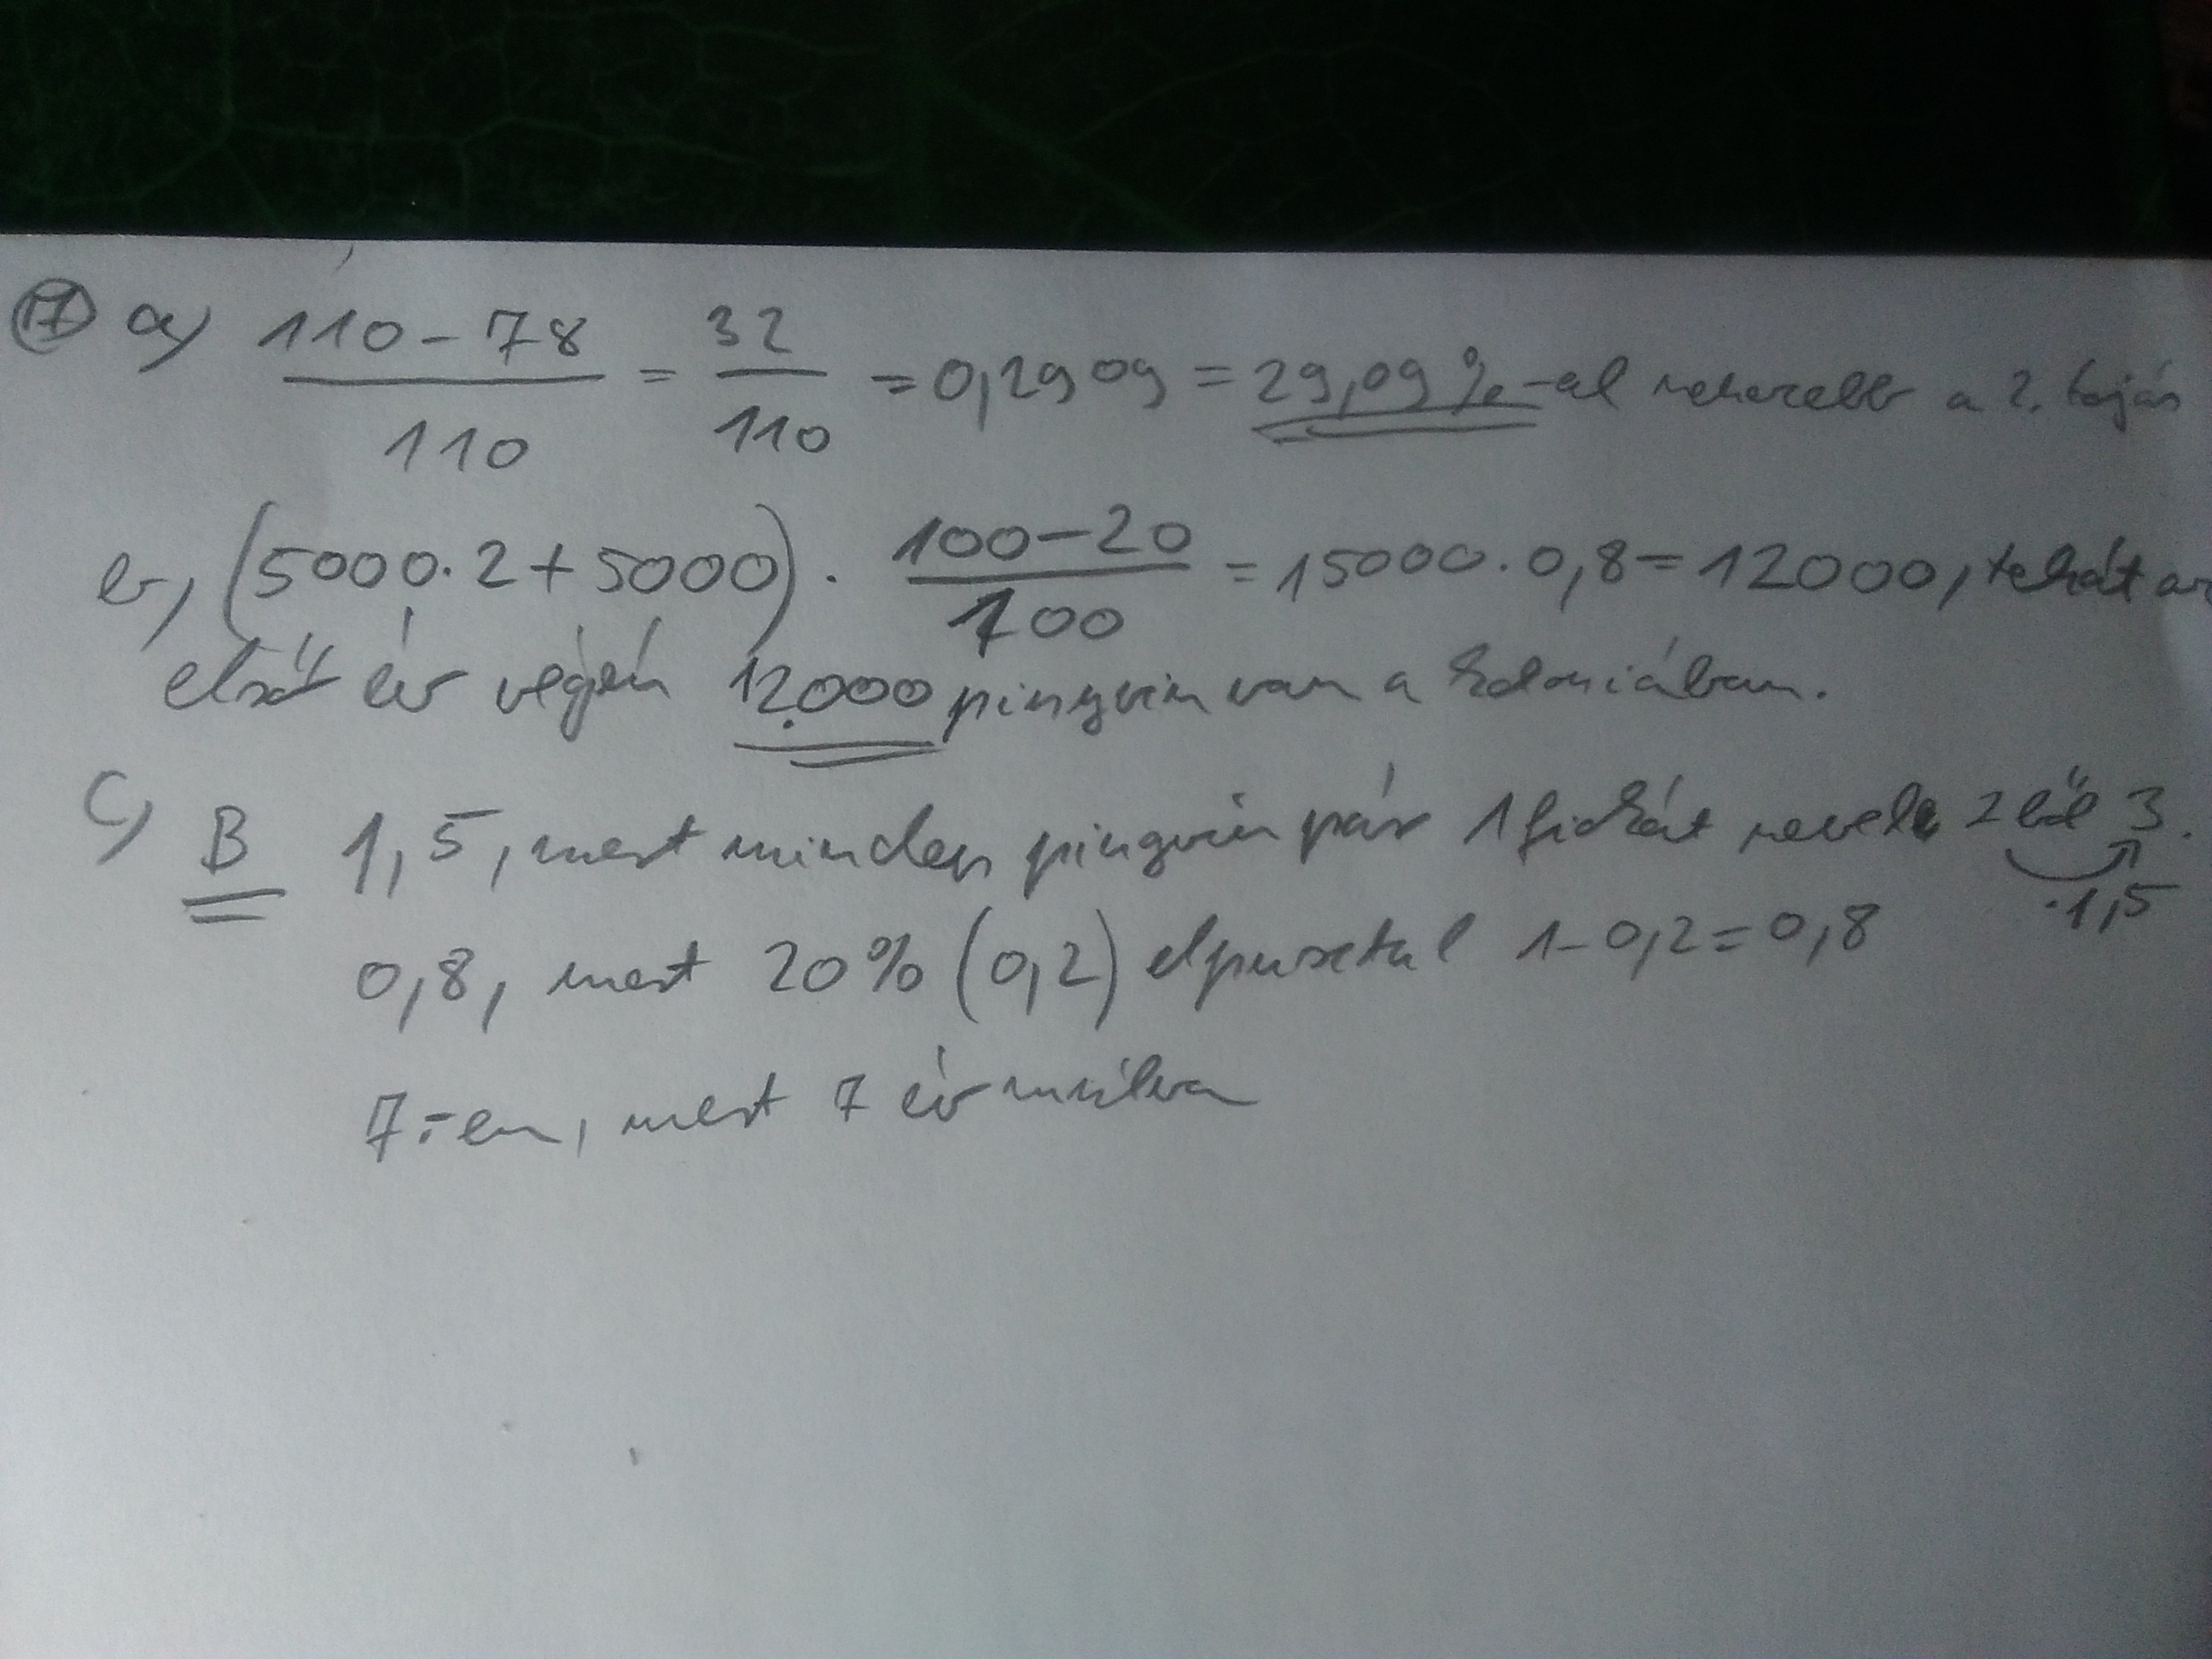 17 a) (110-78)/110 = 32/110 = 0,2909 = 29,09%-al nehezebb a 2. tojás
b, (5000·2+5000) · (100-20)/100 = 15000·0,8=12000, tehát az
első év végén 12.000 pingvin van a kolóniában.
c) B 1,5, mert minden pingvin pár 1 fiókát nevel 2ből 3.
·1,5
0,8, mert 20% (0,2) elpusztul 1-0,2=0,8
7.-en, mert 7 év múlva